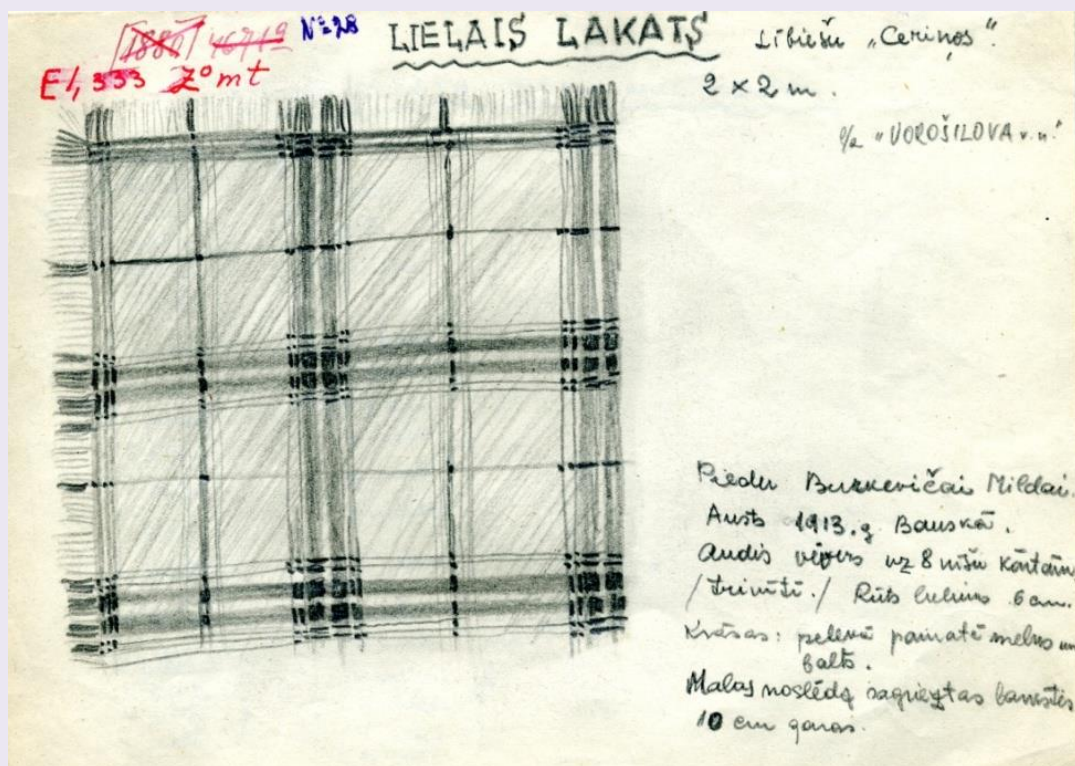 [1880] 46719 № 28
E 1, 333 Z° mt
LIELAIS LAKATS
Lībiešu "Ceriņos".
2 × 2 m.
"VOROŠILOVA
Pieder Burkevičai Mildai.
Austs 1913. g. Bauskā.
Audis vēveris uz 8 nīšu kārtām
/trinītī./ Rūts lielums 6 cm.
Krāsas: pelēkā pamatē melns un
balts.
Malas noslēdz sagrieztas bārkstis
10 cm garas.